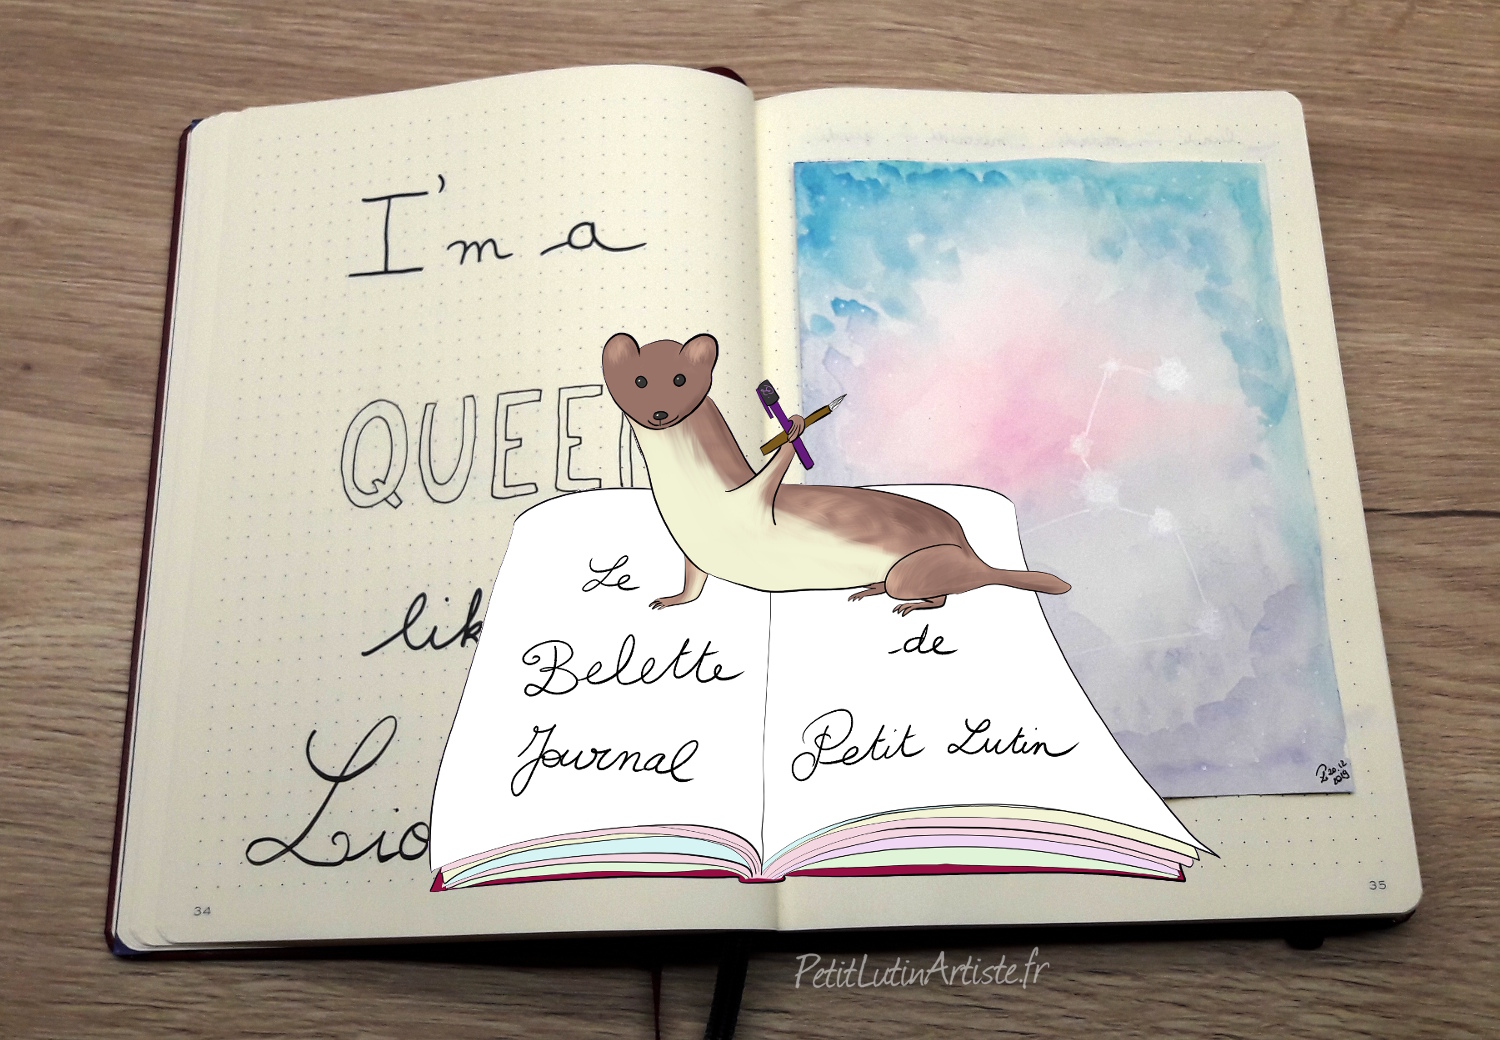 I'm a
QUEE
lik
Lio
34
Le
Belette
Journal
de
Petit Lutin
20.12
2019
35
PetitLutinArtiste.fr